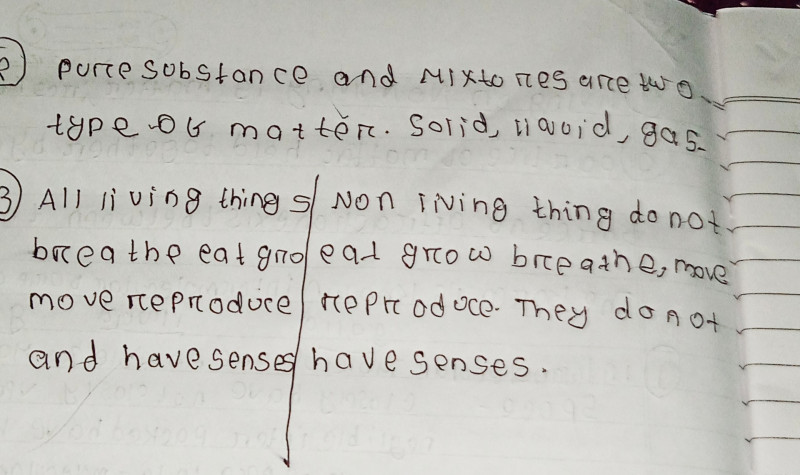 2 Pure substance and Mixtores are two
type of matter. Solid, liquid, gas.
3 All living things / Non living thing do not
breathe eat gro / eat grow breathe, move
move reproduce / reproduce. They do not
and have senses / have senses.